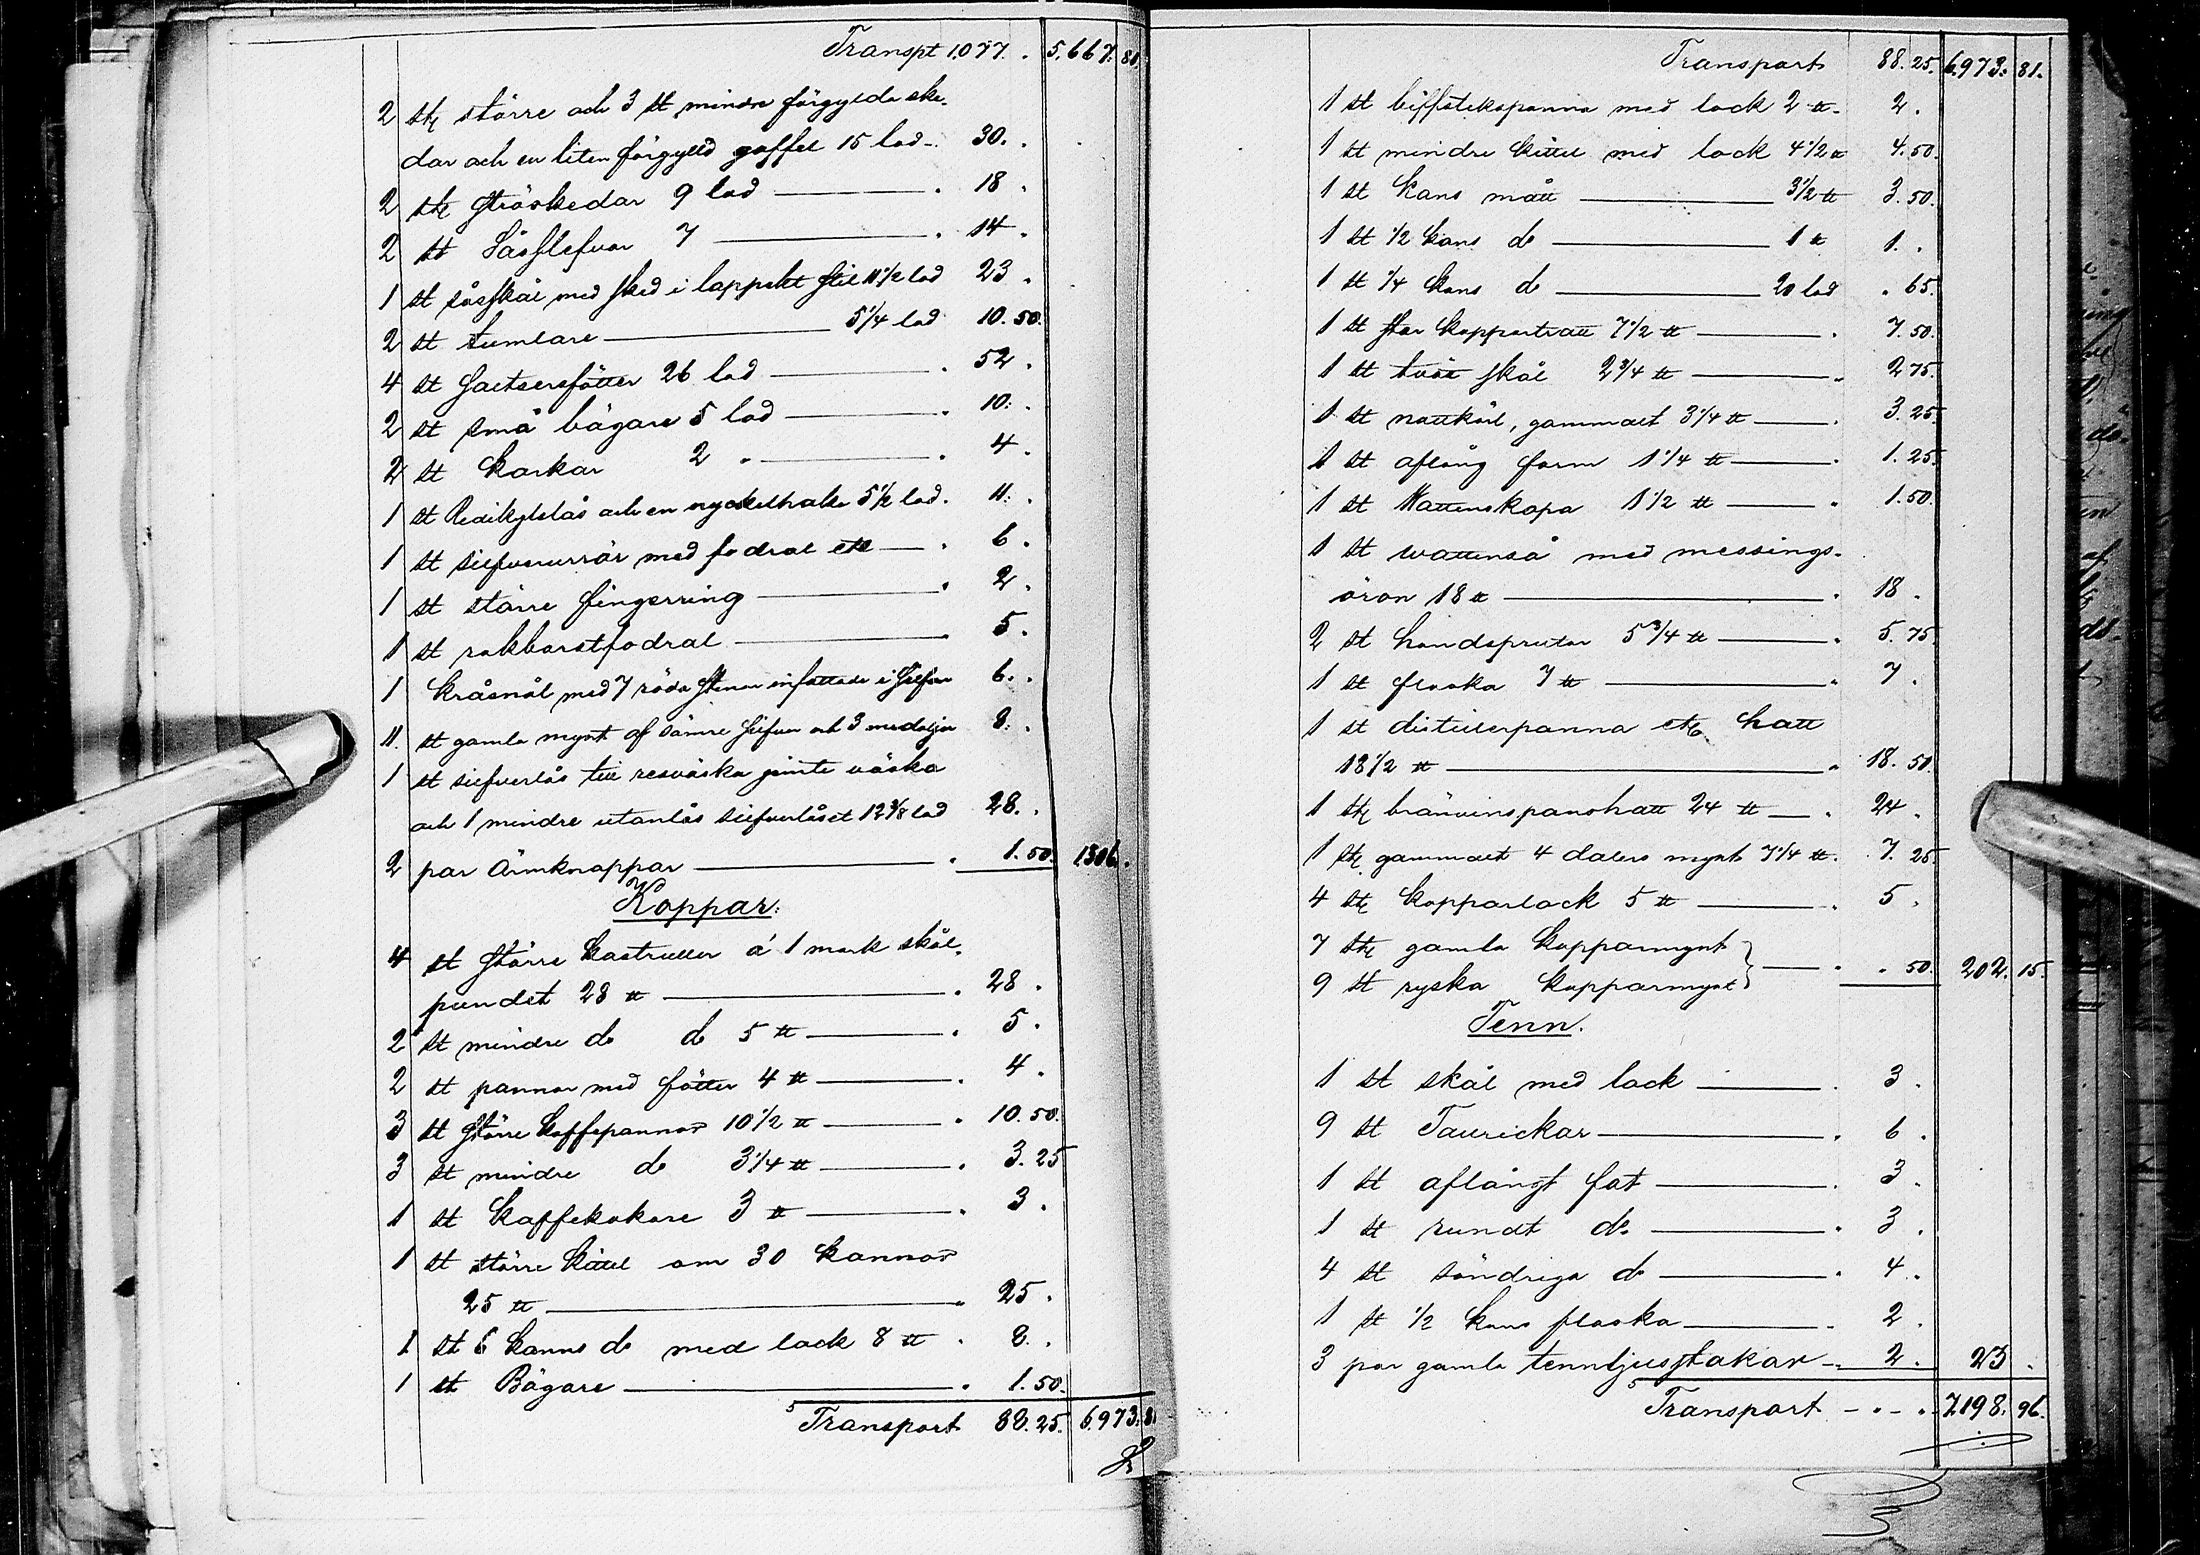 Transpt 1.077. . 5.667. 81.
2 stk större och 3 st mindre förgylda ske-
dar och en liten förgylld gaffel 15 lod - 30. .
2 stk ströskedar 9 lod . 18 .
2 st Såsslefvar 7 . 14 .
1 st såsskål med sked i lappskt stil 11 1/2 lod 23 .
2 st tumlare 5 1/4 lod 10. 50.
4 st saltsersfötter 26 lod . 52 .
2 st små bägare 5 lod . 10. .
2 st Kaskar 2 " . 4 .
1 st Redikylslås och en nyckelhake 5 1/2 lod . 11. .
1 st silfverurrör med fodral etc . 6 .
1 st större fingerring . 2 .
1 st rakborstfodral . 5 .
1 Kråsnål med 7 röda stenar infattade i silfver 6. .
11. st gamla mynt af sämre silfver och 3 medaljer 8. .
1 st silfverlås till resväska jemte väska
och 1 mindre utanlås silfverlåset 12 3/8 lod 28. .
2 par Ärmknappar . 1. 50. 1306 .
Koppar:
4 st större Kastruller á 1 mark skål-
pundet 28 ℔ . 28 .
2 st mindre do do 5 ℔ . 5 .
2 st pannor med fötter 4 ℔ . 4 .
3 st större Kaffepannor 10 1/2 ℔ . 10. 50.
3 st mindre do 3 1/4 ℔ . 3. 25
1 st Kaffekokare 3 ℔ . 3 .
1 st större Kittel om 30 Kannor
25 ℔ . 25 .
1 st 6 Kanns do med lock 8 ℔ . 8. .
1 st Bägare . 1. 50.
Transport 88. 25. 6.973. 81
Transport 88. 25. 6.973. 81.
1 st biffsteksspanna med lock 2 ℔ - 2 .
1 st mindre Kittel med lock 4 1/2 ℔ 4. 50.
1 st Kans mått 3 1/2 ℔ 3. 50.
1 st 1/2 Kans do 1 ℔ 1. .
1 st 1/4 Kans do 20 lod . 65.
1 st stor Koppartratt 7 1/2 ℔ . 7. 50.
1 st två skål 2 3/4 ℔ . 2 75.
1 st nattkärl, gammalt 3 1/4 ℔ . 3. 25.
1 st aflång form 1 1/4 ℔ . 1. 25.
1 st Wattenskopa 1 1/2 ℔ . 1. 50.
1 st wattenså med messings-
öron 18 ℔ . 18 .
2 st handsprutor 5 3/4 ℔ . 5. 75.
1 st flaska 7 ℔ . 7 .
1 st distillerpanna etc hatt
18 1/2 ℔ . 18. 50.
1 stk bränvinspanshatt 24 ℔ . 24 .
1 stk gammalt 4 dalers mynt 7 1/4 ℔ . 7. 25.
4 stk Kopparlock 5 ℔ . 5 .
7 stk gamla Kopparmynt
9 st ryska Kopparmynt } . . 50. 202. 15.
Tenn.
1 st skål med lock . 3 .
9 st Talrickar . 6 .
1 st aflångt fat . 3 .
1 st rundt do . 3 .
4 st söndriga do . 4 .
1 st 1/2 Kans flaska . 2 .
3 par gamla tennljusstakar . 2 . 23 .
Transport - . - . 7.198. 96.